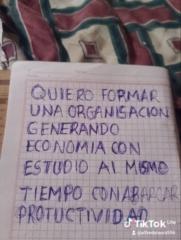 QUIERO FORMAR
UNA ORGANISACION
GENERANDO
ECONOMIA CON
ESTUDIO AL MISMO
TIEMPO CON ABARCAR
PROTUCTIVIDAD
TikTok Lite